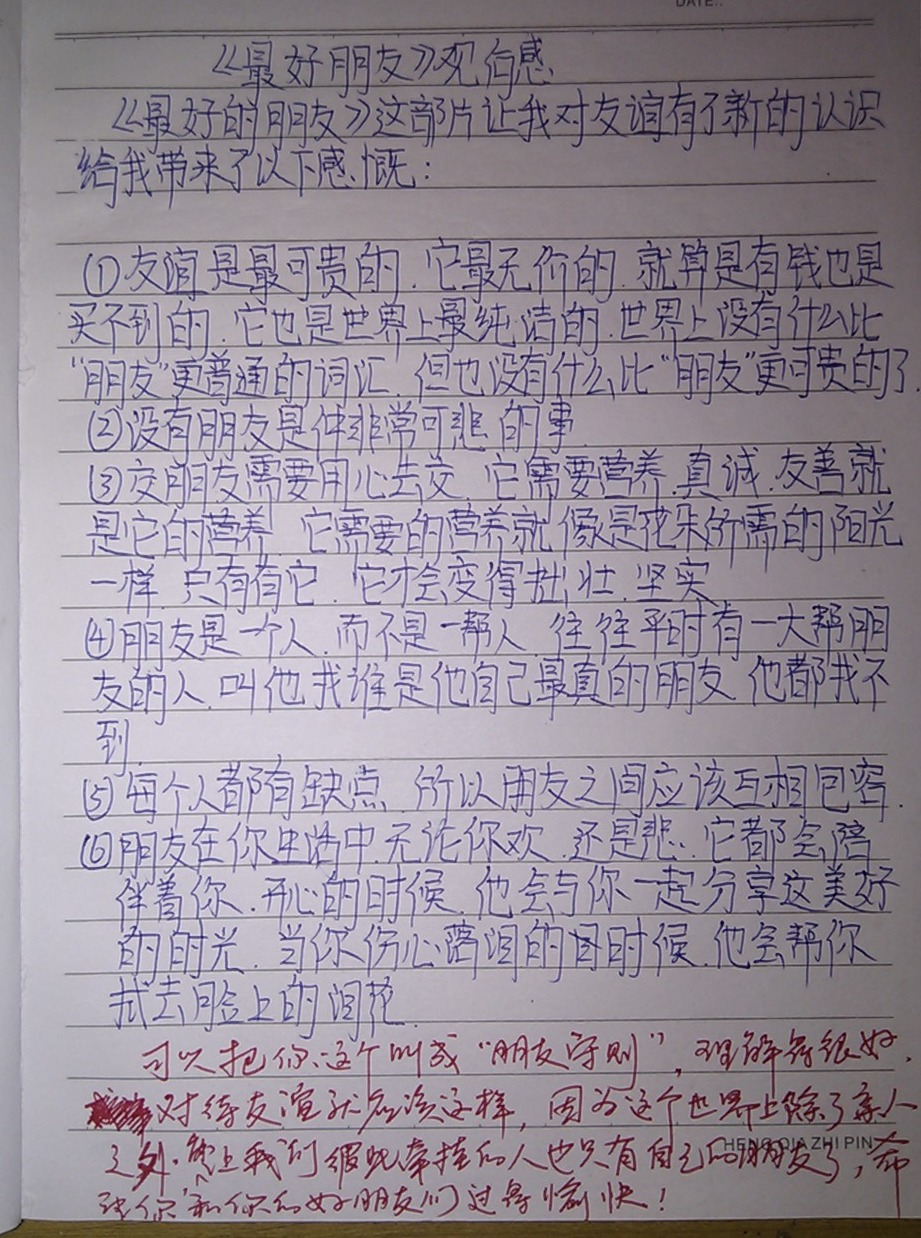 DATE..
《最好朋友》观后感
《最好的朋友》这部片让我对友谊有了新的认识
给我带来了以下感慨:
①友谊是最可贵的.它最无价的.就算是有钱也是
买不到的.它也是世界上最纯洁的.世界上没有什么比
“朋友”更普通的词汇.但也没有什么比“朋友”更可贵的了.
②没有朋友是件非常可悲的事
③交朋友需要用心去交.它需要营养.真诚.友善就
是它的营养.它需要的营养就像是花朵所需的阳光
一样.只有有它.它才会变得拙壮.坚实
④朋友是一个人.而不是一帮人.往往平时有一大帮朋
友的人.叫他找谁是他自己最真的朋友.他都找不
到.
⑤每个人都有缺点.所以朋友之间应该互相包容.
⑥朋友在你生活中.无论你欢.还是悲.它都会陪
伴着你.开心的时候.他会与你一起分享这美好
的时光.当你伤心落泪的时候.他会帮你
拭去脸上的泪花.
可以把你这个叫成“朋友守则”,理解得很好.
对待友谊就应该这样,因为这个世界上除了亲人
之外.能让我们牵挂的人也只有自己的朋友了,希
望你和你的好朋友们过得愉快!
HENG QIA ZHI PIN